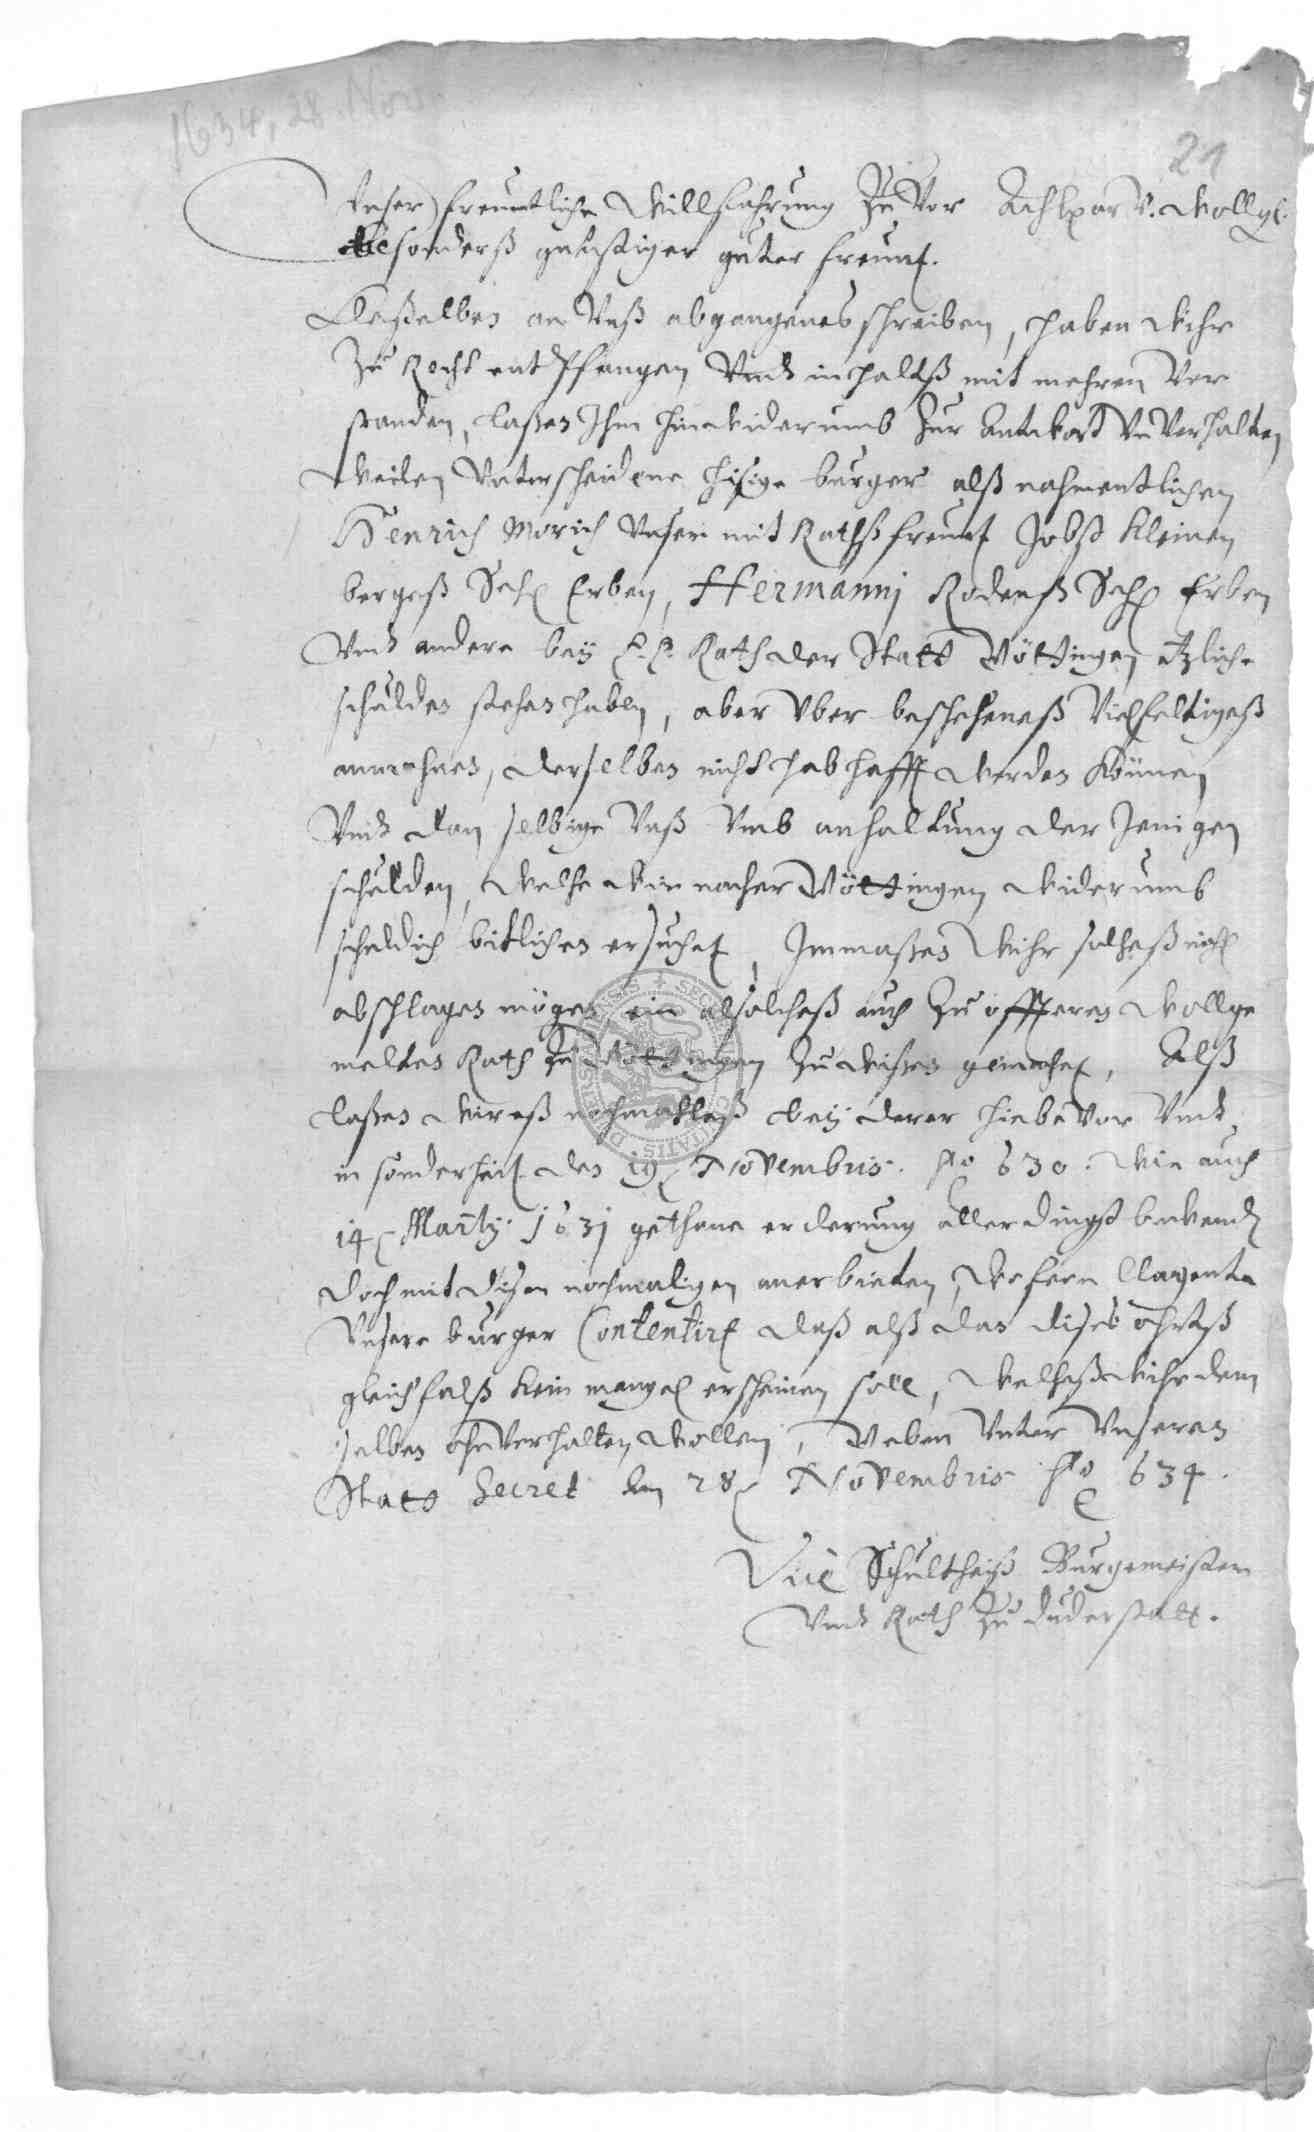 1634, 28. Nov.
21
Unser freuntliche Willfahrung zu Vor Achtpar V. Wollgl.
besonderß gunstiger guter freunt.
Deßelben an Unß abgangenes schreiben, haben Wihr
Zu Recht entpfangen Und inhaltß mit mehren Ver
standen, laßen Ihm hinwiderumb Zur Antwort UnVerhalten
Weilen Unterscheidene hisige burger alß nahmentlichen
Henrich Morich Unser mit Rathß freunt Jobst Kleinen
bergeß Sehl Erben, Hermanni Rodenß Sehl Erben
Und andere bey E. E. Rath der Statt Göttingen etzliche
schulden stehen haben, aber Uber bescheheneß Vielfeltigeß
anmahnen, derselben nicht habhafft werden Können
Und dan selbige Unß Umb anhaltung der Jenigen
schulden, Welche Wir nacher Göttingen Widerumb
schuldich bitlichen ersuchet, Immaßen Wihr solcheß nicht
abschlagen mögen, ein alsolcheß auch Zu offteren Wollge
melten Rath Zu Göttingen Zu Wißen gemachet, Alß
laßen Wir eß nochmahlß bey derer hiebevor Und
in sonderheit den 19 Novembris. Ao 630. Wie auch
14 Martij. 1631 gethane erclerung aller dingß bewenden
doch mit disen nochmaligen anerbieten, Wofern Clagente
Unsere burger Contentirt daß alß dan dises ohrtß
gleichfalß Kein mangel erscheinen solle, Welcheß Wihr dem
selben ohnVerhalten Wollen, Geben Unter Unseren
Statt Secret den 28 Novembris Ao 634.
Vice Schultheiß Burgemeistere
Und Rath Zu Duderstatt.